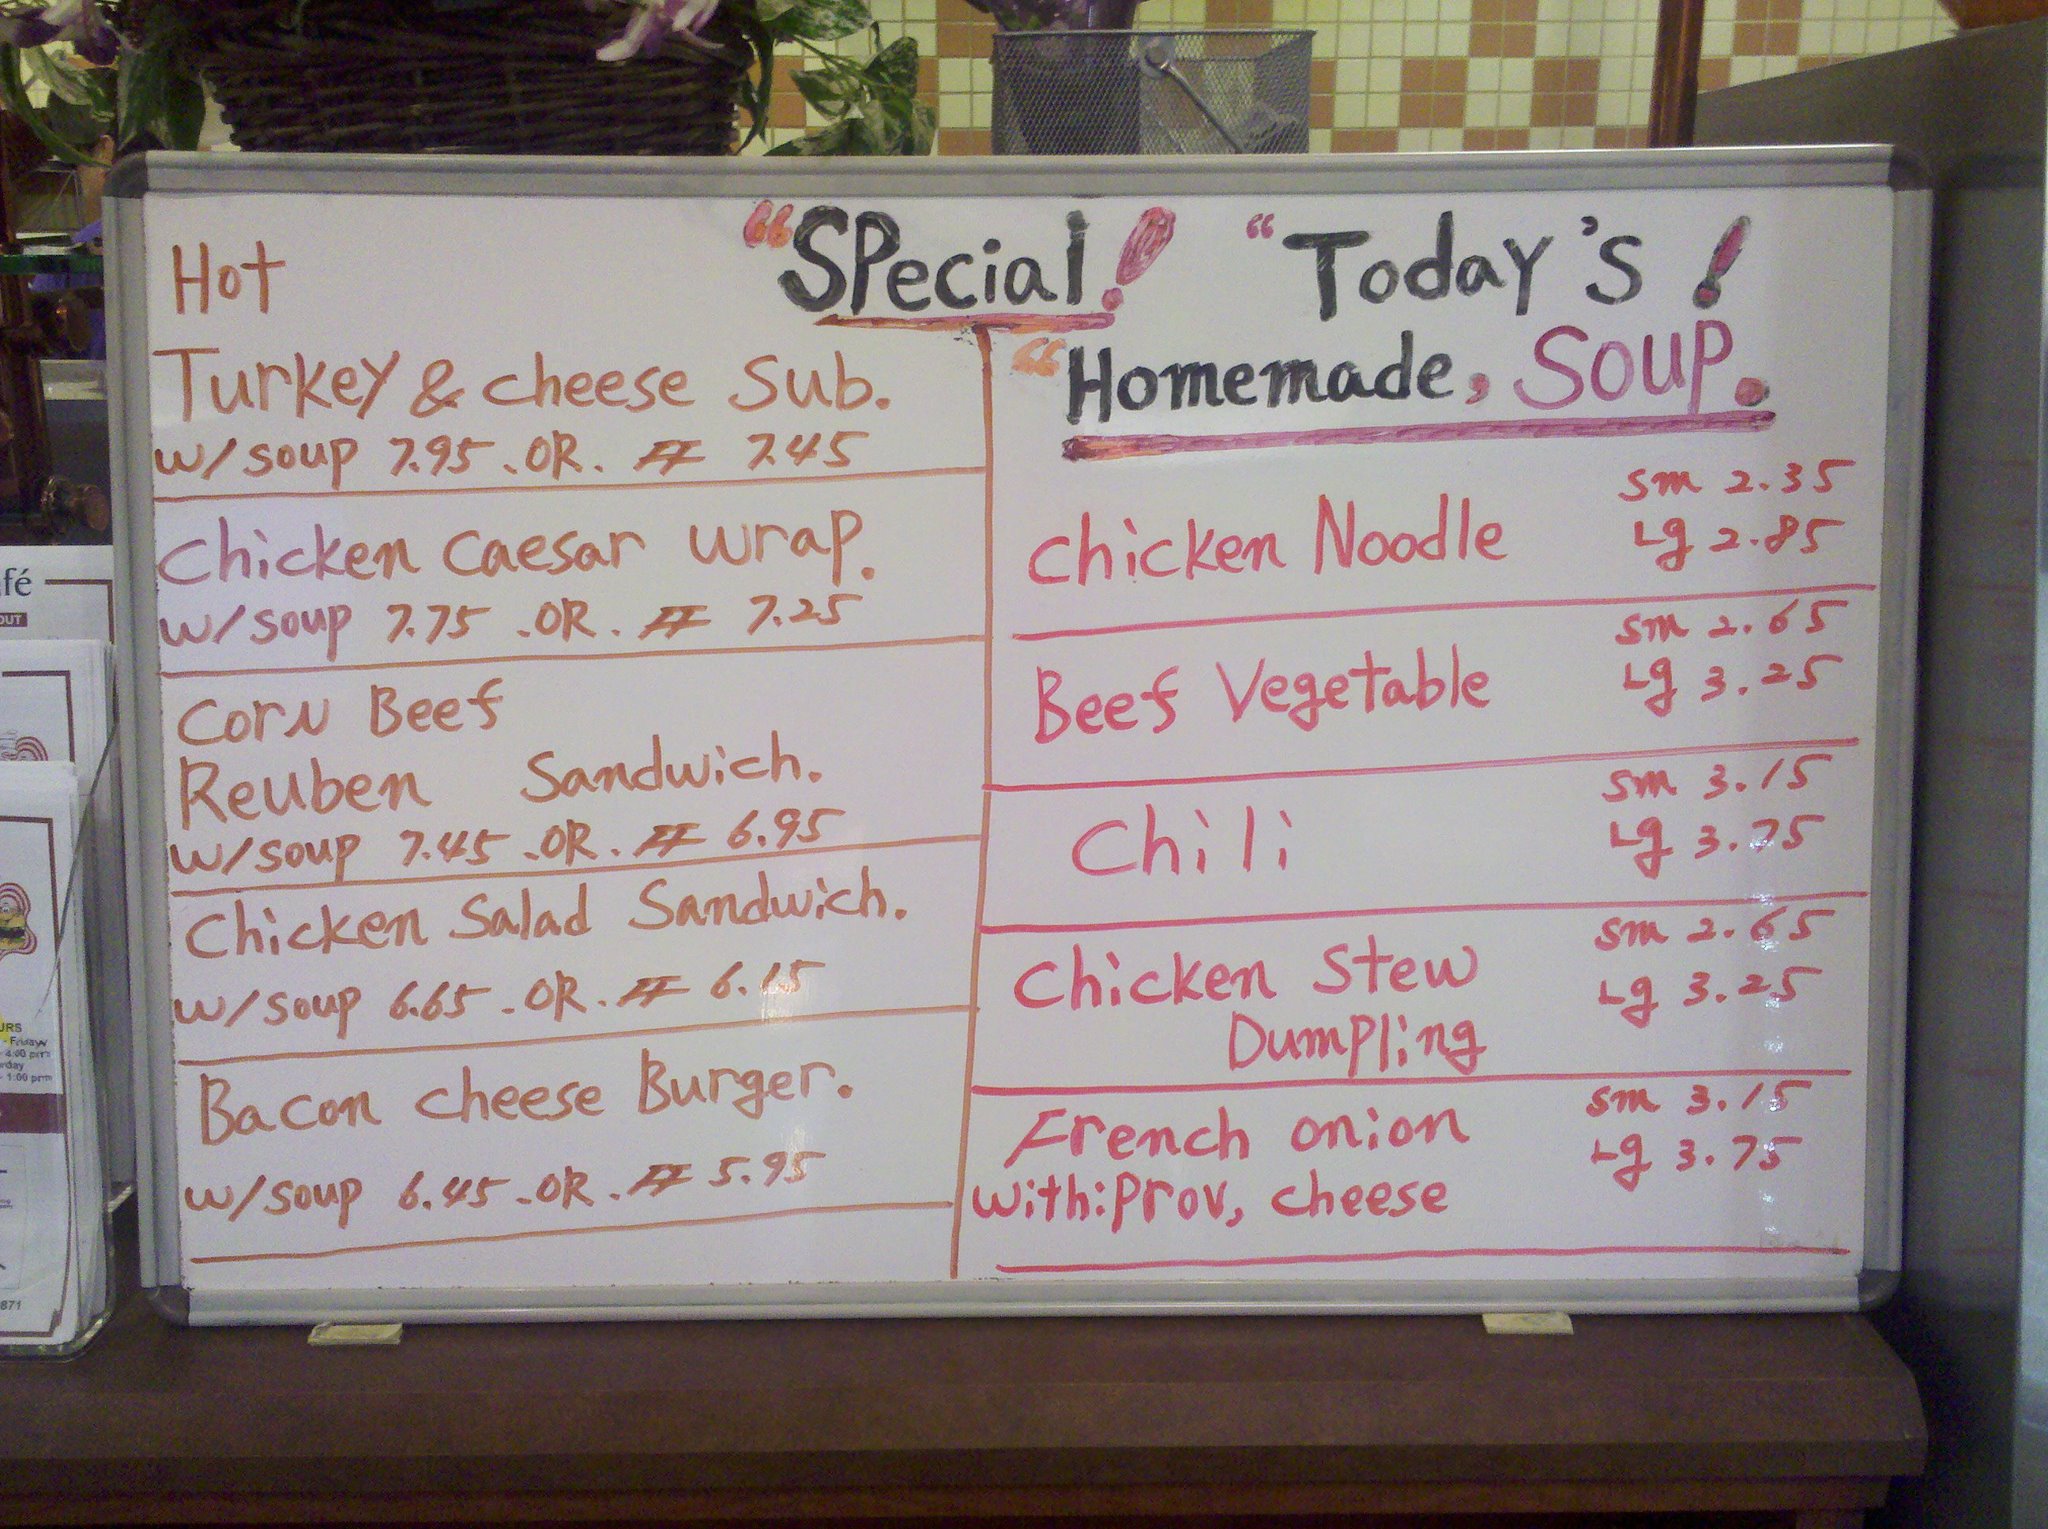 "Special! "Today's!
Hot
"Homemade, Soup.
Turkey & cheese Sub.
w/soup 7.95 . OR. FF 7.45
Chicken Caesar wrap.
w/soup 7.75 . OR. FF 7.25
Corn Beef
Reuben Sandwich.
w/soup 7.45 . OR. FF 6.95
Chicken Salad Sandwich.
w/soup 6.65 . OR. FF 6.15
Bacon cheese Burger.
w/soup 6.45 . OR. FF 5.95
sm 2.35
Chicken Noodle Lg 2.85
sm 2.65
Beef Vegetable Lg 3.25
sm 3.15
Chili Lg 3.75
sm 2.65
Chicken Stew Lg 3.25
Dumpling
sm 3.15
French onion Lg 3.75
with: Prov, cheese
fé
OUT
URS
- Friday
- 4:00 pm
rday
- 1:00 pm
871